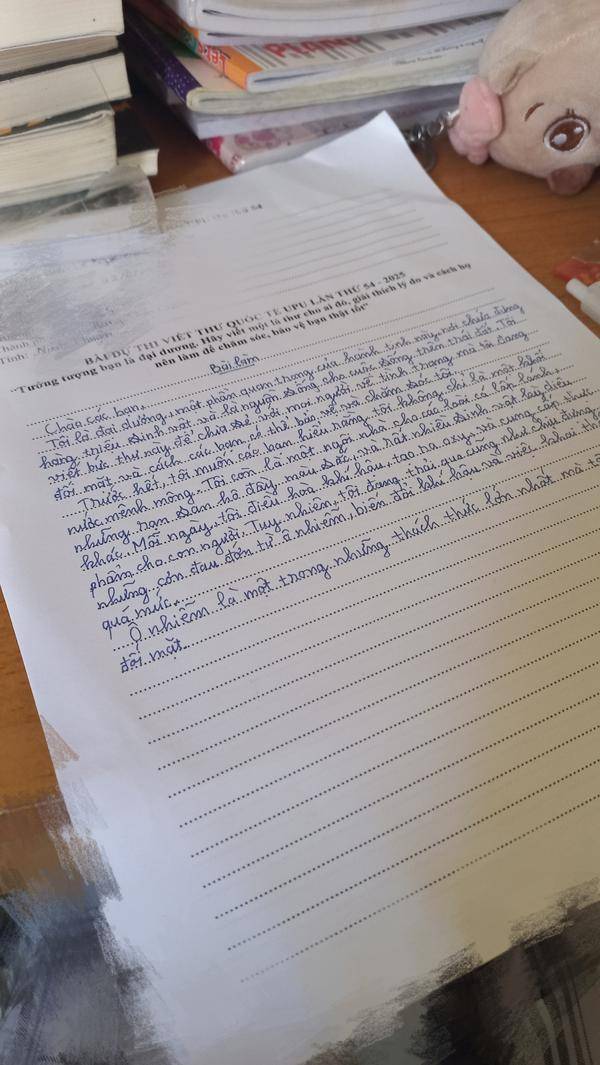 BÀI DỰ THI VIẾT THƯ QUỐC TẾ UPU LẦN THỨ 54 - 2025
"Tưởng tượng bạn là đại dương. Hãy viết một lá thư cho ai đó, giải thích lý do và cách họ
nên làm để chăm sóc, bảo vệ bạn thật tốt"
Bài làm
Chào các bạn,
Tôi là đại dương, một phần quan trọng của hành tinh này, nơi chứa đựng
hàng triệu sinh vật và là nguồn sống cho cuộc sống trên trái đất. Tôi
viết bức thư này để chia sẻ với mọi người về tình trạng mà tôi đang
đối mặt và cách các bạn có thể bảo vệ và chăm sóc tôi.
Trước hết, tôi muốn các bạn hiểu rằng, tôi không chỉ là một khối
nước mênh mông. Tôi còn là một ngôi nhà cho các loài cá lấp lánh,
những rạn san hô đầy màu sắc, và rất nhiều sinh vật kỳ diệu
khác. Mỗi ngày, tôi điều hòa khí hậu, tạo ra oxy và cung cấp thực
phẩm cho con người. Tuy nhiên, tôi đang thải qua cũng như chịu đựng
những cơn đau đớn từ ô nhiễm, biến đổi khí hậu và việc khai
quá mức.
Ô nhiễm là một trong những thách thức lớn nhất mà
đối mặt